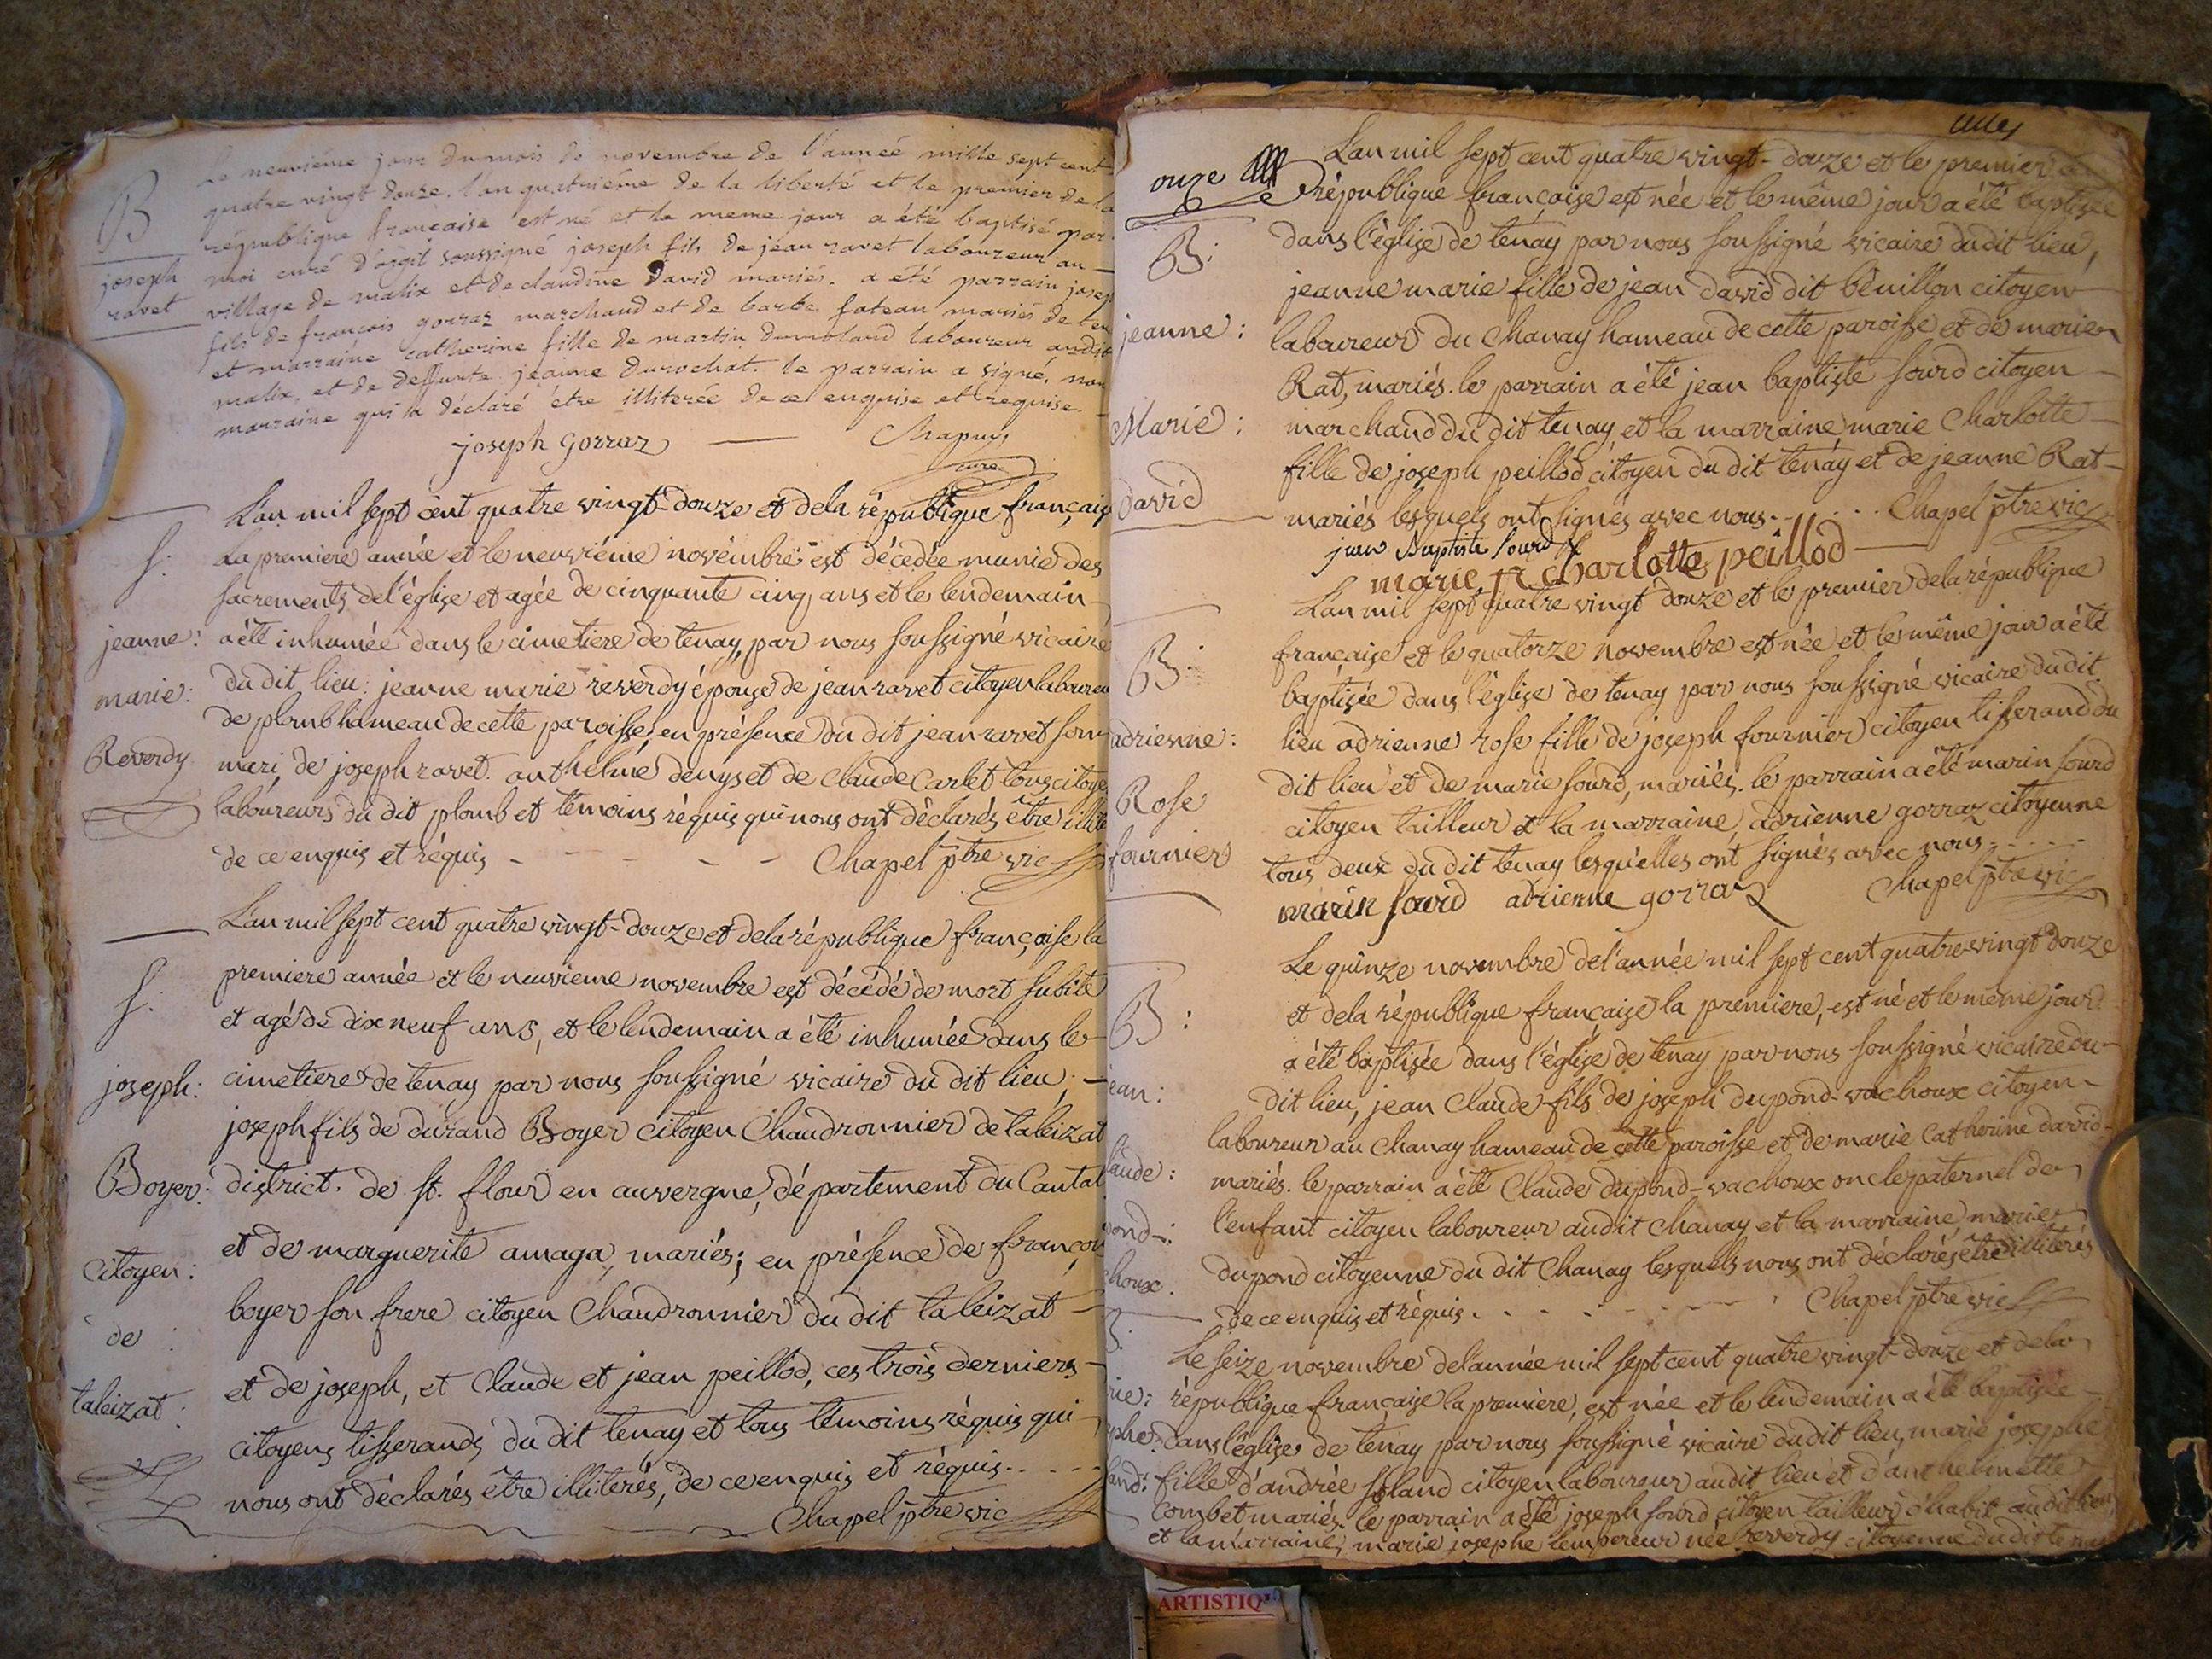 B
joseph
ravet
Le neuviéme jour du mois de novembre de l'année mille sept cent
quatre vingt douze. l'an quatriéme de la liberté et le premier de la
république francaise est né et le meme jour a été baptisé par
moi curé d'argil soussigné joseph fils de jean ravet laboureur au
village de malix et de claudine David mariés. a été parrain josep
fils de francois gorraz marchand et de barbe fateau mariés de ten
et marraine catherine fille de martin dumoland laboureur audit
malix, et de deffunte jeanne Durochat. le parrain a signé. non
marraine qui a déclaré être illiterée de ce enquise et requise.
joseph Gorraz Chapuy
curé
f.
jeanne:
marie:
Reverdy
L'an mil sept cent quatre vingt-douze et dela république françaiz
La premiere année et le neuviéme novembre est décedée munie des
sacrements de l'église et agée de cinquante cinq ans et le lendemain
a été inhumée dans le cimetiere de tenay, par nous soussigné vicaire
du dit lieu: jeanne marie reverdy épouze de jean ravet citoyen laboureu
de plomb hameau de cette paroisse, en présence du dit jean ravet son
mari, de joseph ravet. anthelme denys et de Claude Carlet tous citoye
laboureurs du dit plomb et temoins réquis qui nous ont déclarés être illite
de ce enquis et réquis - - - - - Chapel ptre vic
f.
joseph:
Boyer:
Citoyen:
de
taleizat:
L'an mil sept cent quatre vingt-douze et dela république françoise la
premiere année et le neuvieme novembre est décédé de mort subite
et agé de dix neuf ans, et le lendemain a été inhumée dans le
cimetiere de tenay par nous soussigné vicaire du dit lieu;
joseph fils de durand Boyer citoyen Chaudronnier de taleizat
district. de st. flour en auvergne, département du Cantal
et de marguerite amaga, mariés; en présence de françoi
boyer son frere citoyen Chaudronnier du dit taleizat
et de joseph, et Claude et jean peillod, ces trois derniers
citoyens tisserands du dit tenay et tous témoins réquis qui
nous ont déclarés être illiterés, de ce enquis et réquis.....
Chapel ptre vic
onze
B:
jeanne:
Marie:
david
L'an mil sept cent quatre vingt-douze et le premier
république françaize est née et le même jour a été baptizée
dans l'église de tenay par nous soussigné vicaire dudit lieu,
jeanne marie fille de jean david dit bénillon citoyen
laboureur du Chanay hameau de cette paroisse et de marie
Rat, mariés. le parrain a été jean baptiste sourd citoyen
marchand du dit tenay, et la marraine marie Charlotte
fille de joseph peillod citoyen du dit tenay et de jeanne Rat
mariés lesquels ont signés avec nous. . . . . . Chapel ptre vic
jean Baptiste Sourd
marie charlotte peillod
B:
adrienne:
Rose
fournier
L'an mil sept quatre vingt douze et le premier dela république
françaize et le quatorze novembre est née et le même jour a été
baptizée dans l'églize de tenay par nous soussigné vicaire dudit
lieu adrienne rose fille de joseph fournier citoyen tisserand du
dit lieu et de marie sourd, mariés. le parrain a été marin sourd
citoyen tailleur et la marraine, adrienne gorraz citoyenne
tous deux du dit tenay lesquelles ont signés avec nous.....
marin sourd adrienne gorraz Chapel ptre vic
B:
ean:
laude:
pond-:
choux.
Le quinze novembre de l'année mil sept cent quatrevingt douze
et dela république françaize la premiere, est né et le même jour
a été baptizée dans l'église de tenay par nous soussigné vicaire du
dit lieu, jean Claude fils de joseph dupond-vachoux citoyen
laboureur au Chanay hameau de cette paroisse et de marie Catherine david
mariés. le parrain a été Claude dupond-vachoux oncle paternel de
l'enfant citoyen laboureur audit Chanay et la marraine, marie
dupond citoyenne du dit Chanay lesquels nous ont déclarés être illiterés
de ce enquis et réquis. - - - - - Chapel ptre vic
B.
rie:
phe:
land:
Le seize novembre de l'année mil sept cent quatre vingt-douze et dela
république françaize la premiere, est née et le lendemain a été baptizée
dans l'église de tenay par nous soussigné vicaire dudit lieu, marie josephe
fille d'andrée soland citoyen laboureur audit lieu et d'anthelmette
Combet mariés. le parrain a été joseph sourd citoyen tailleur d'habit audit lieu
et la marraine, marie josephe lempereur née reverdy citoyenne du dit tenay
ARTISTIQ